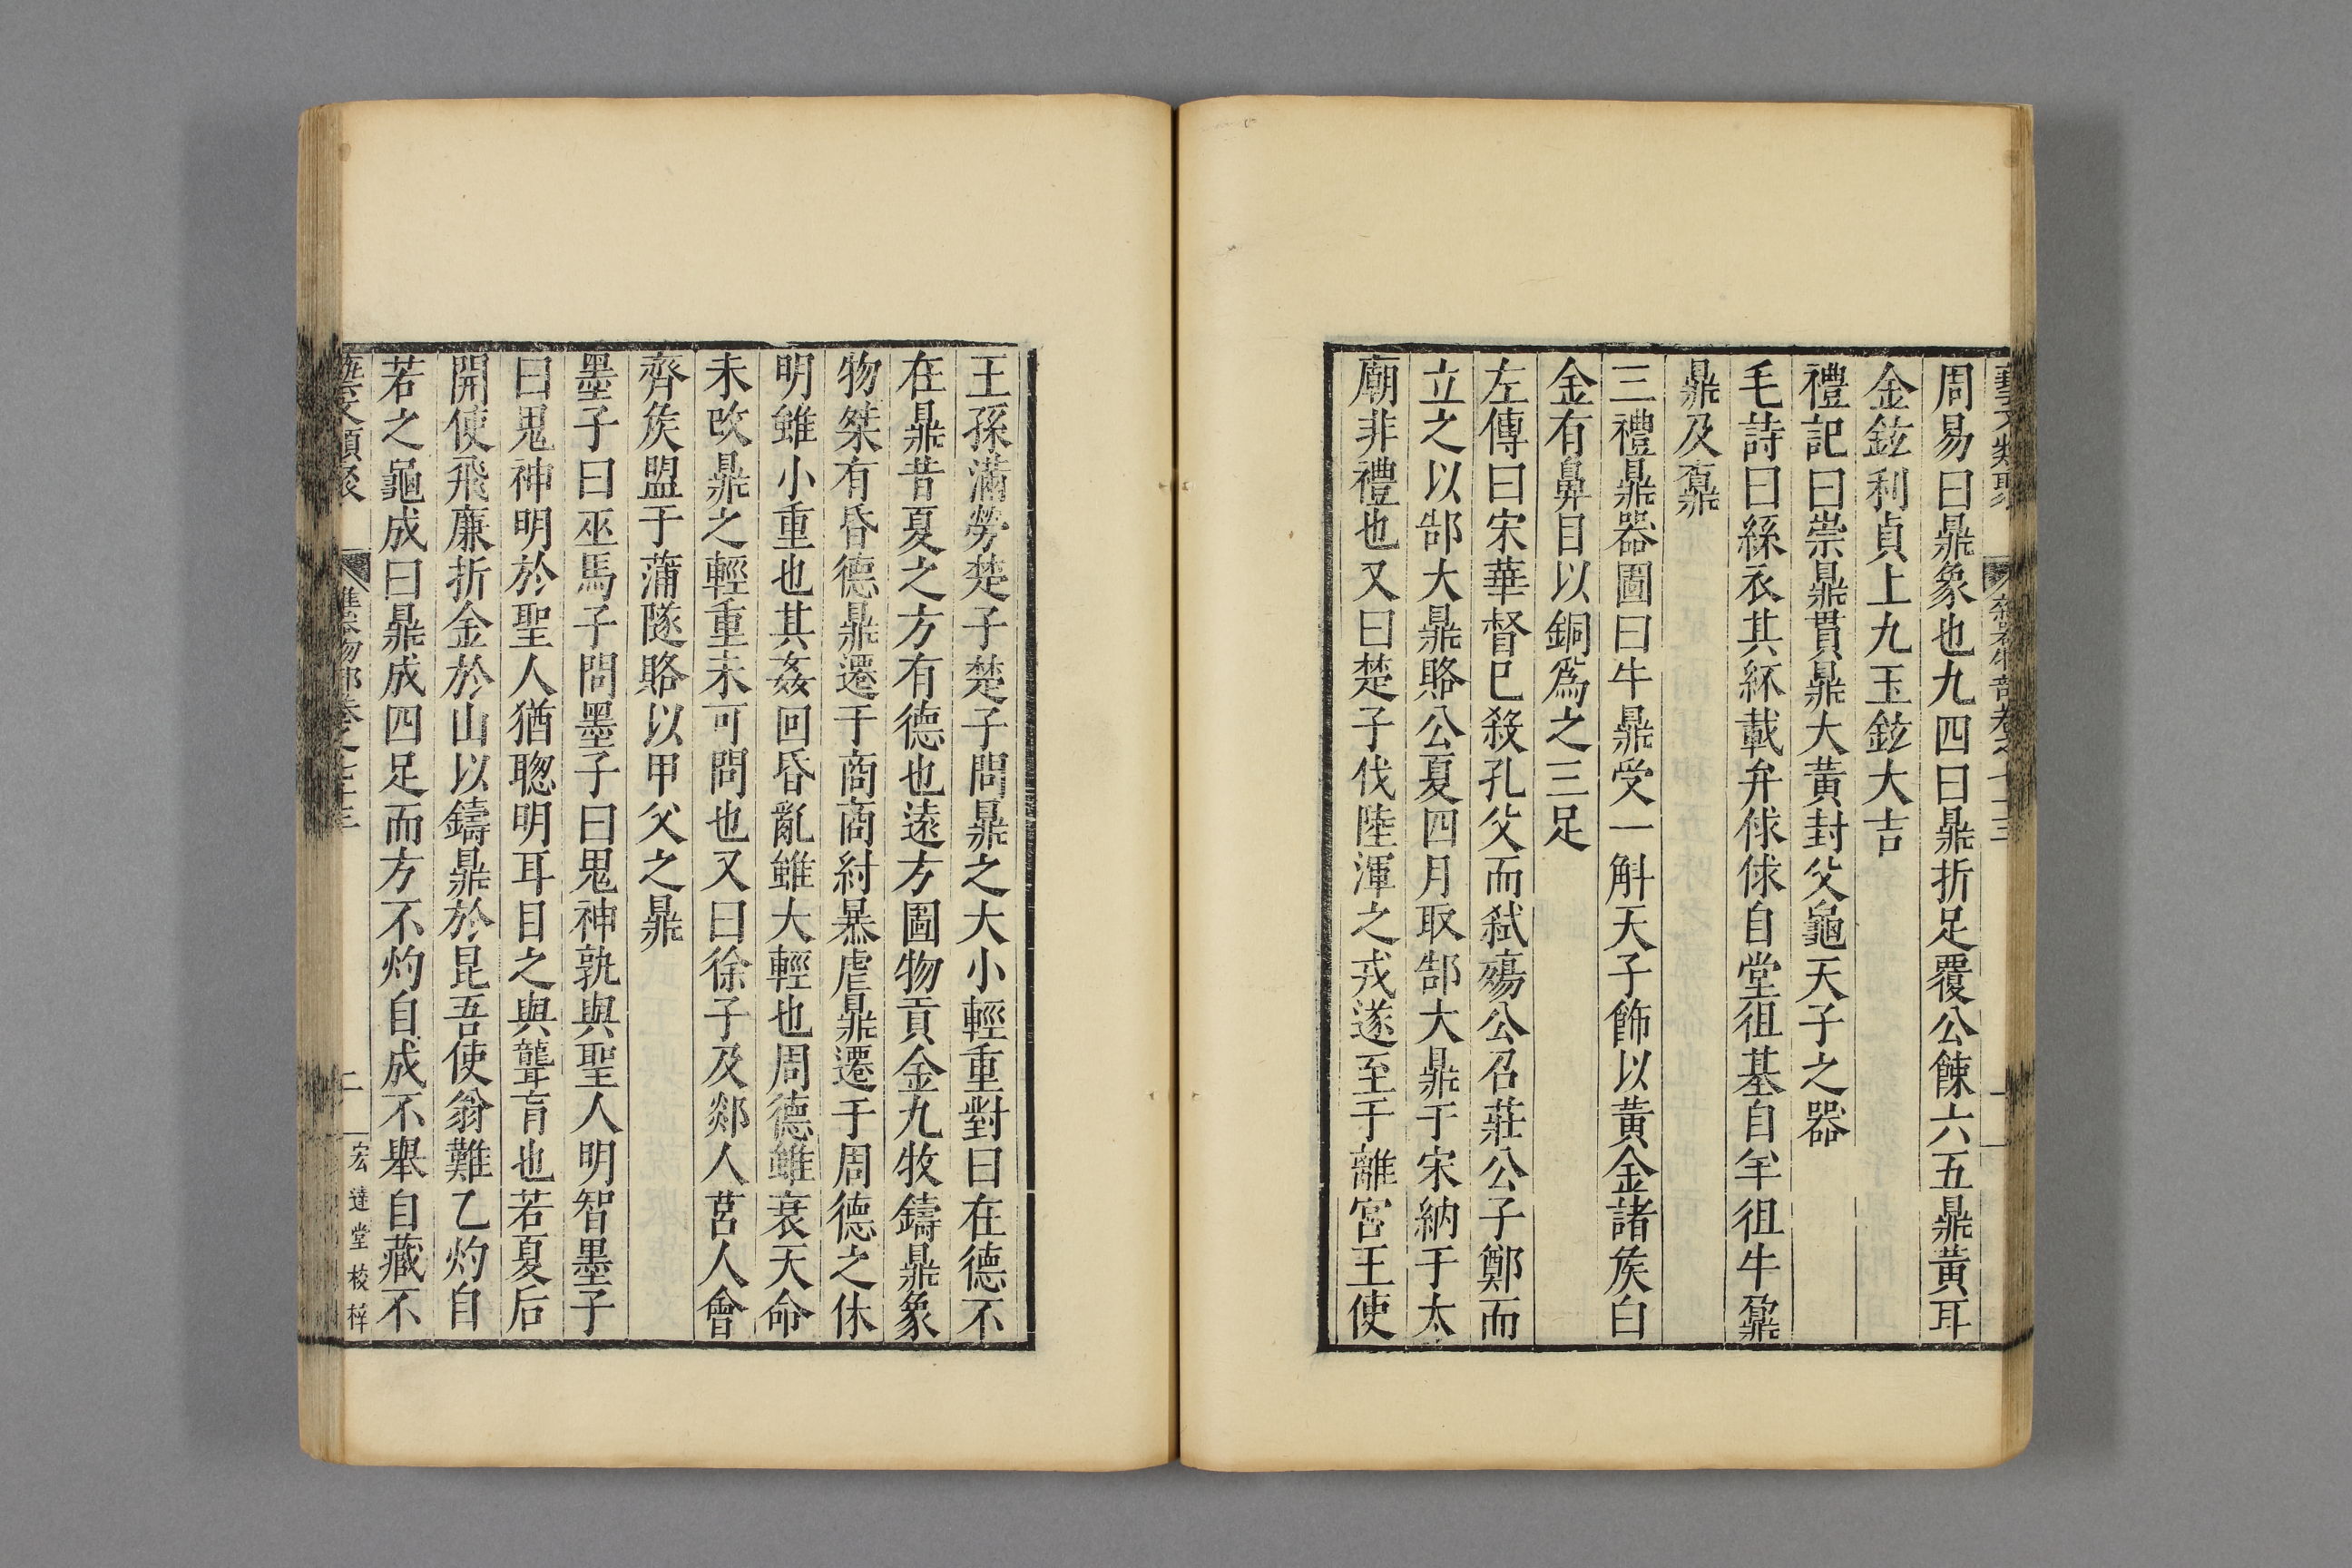 周易曰鼎象也九四曰鼎折足覆公餗六五鼎黃耳
金鉉利貞上九玉鉉大吉
禮記曰崇鼎貫鼎大黃封父龜天子之器
毛詩曰絲衣其紑載弁俅俅自堂徂基自羊徂牛鼐
鼎及鼒
三禮鼎器圖曰牛鼎受一斛天子飾以黃金諸矦白
金有鼻目以銅爲之三足
左傳曰宋華督巳殺孔父而弑殤公召莊公子鄭而
立之以郜大鼎賂公夏四月取郜大鼎于宋納于太
廟非禮也又曰楚子伐陸渾之戎遂至于雒宮王使
王孫滿勞楚子楚子問鼎之大小輕重對曰在德不
在鼎昔夏之方有德也遠方圖物貢金九牧鑄鼎象
物桀有昏德鼎遷于商商紂暴虐鼎遷于周德之休
明雖小重也其姦回昏亂雖大輕也周德雖衰天命
未改鼎之輕重未可問也又曰徐子及郯人莒人會
齊矦盟于蒲隧賂以甲父之鼎
墨子曰巫馬子問墨子曰鬼神孰與聖人明智墨子
曰鬼神明於聖人猶聦明耳目之與聾盲也若夏后
開使飛廉折金於山以鑄鼎於昆吾使翁難乙灼自
若之龜成曰鼎成四足而方不灼自成不舉自藏不
藝文類聚 雜器物部卷之七十三 二 宏達堂校梓